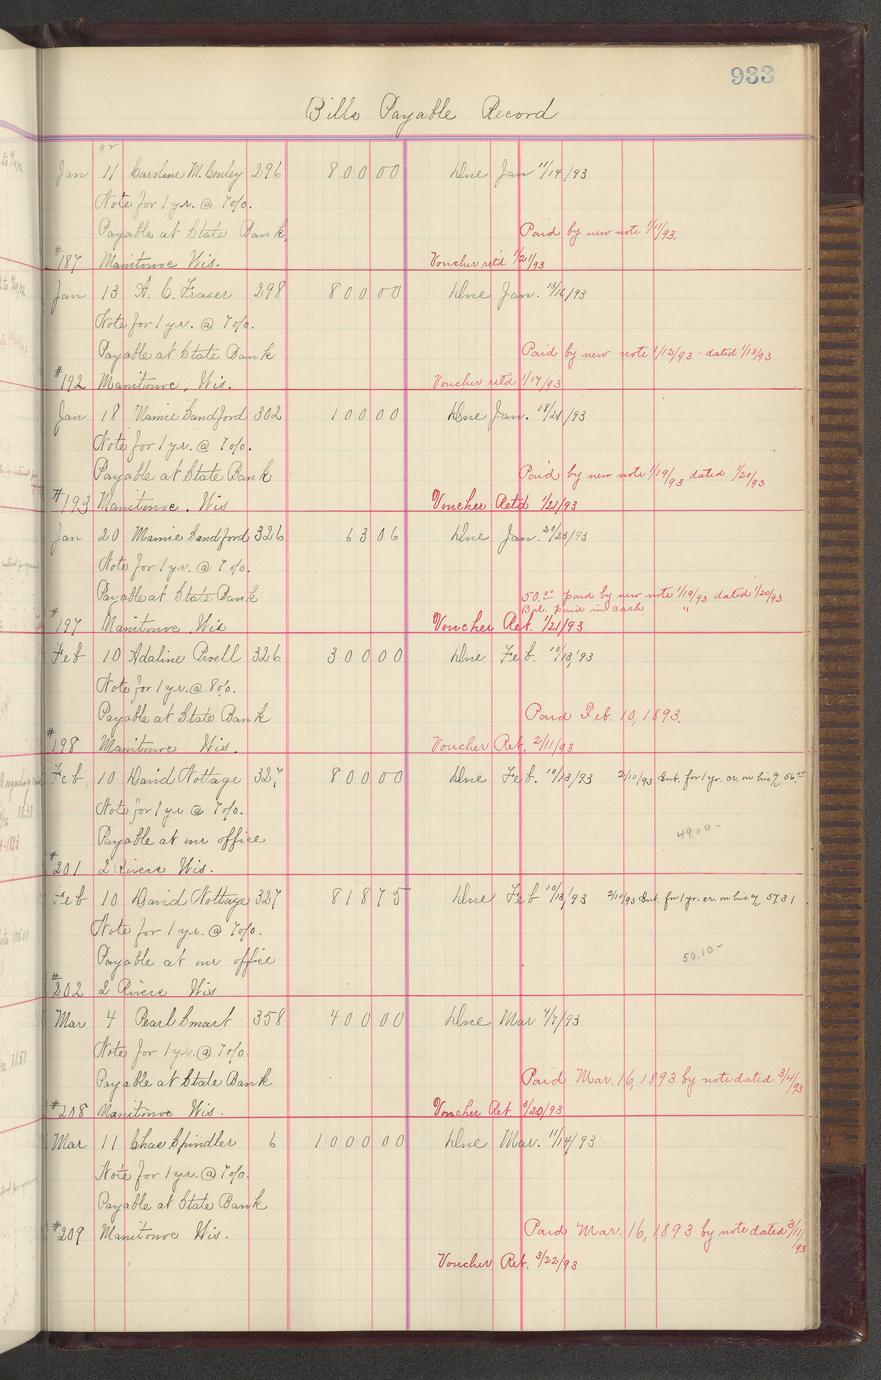 933
Bills Payable Record
92
Jan 11 Caroline M. Conley 296 800 00 Due Jan 11/14/93
Note for 1 yr. @ 7%.
Payable at State Bank, Paid by new note 1/11/93.
#187 Manitowoc Wis. Voucher ret'd 1/21/93
Jan 13 A. C. Fraser 298 800 00 Due Jan. 13/16/93
Note for 1 yr. @ 7%.
Payable at State Bank Paid by new note 1/12/93 - dated 1/13/93
#192 Manitowoc, Wis. Voucher ret'd 1/17/93
Jan 18 Mamie Sandford 302 100 00 Due Jan. 18/21/93
Note for 1 yr. @ 7%.
Payable at State Bank Paid by new note 1/19/93 dated 1/20/93
#193 Manitowoc, Wis Voucher Retd 1/21/93
Jan 20 Mamie Sandford 326 63 06 Due Jan. 20/23/93
Note for 1 yr. @ 7%.
Payable at State Bank 50.00 paid by new note 1/19/93 dated 1/20/93
Bal. paid in cash "
#197 Manitowoc, Wis Voucher Ret. 1/21/93
Feb 10 Adaline 326 300 00 Due Feb. 10/13/93
Note for 1 yr. @ 8%.
Payable at State Bank Paid Feb. 10, 1893.
#198 Manitowoc Wis. Voucher Ret. 2/11/93
Feb 10 David Nottage 327 800 00 Due Feb. 10/13/93 2/10/93 Int. for 1 yr. cr. on his a/c 56.00
Note for 1 yr @ 7%.
Payable at our office 49.00-
#201 2 Rivers Wis.
Feb 10 David Nottage 327 818 75 Due Feb 10/13/93 2/10/93 Int. for 1 yr. cr. on his a/c 57 31
Note for 1 yr. @ 7%.
Payable at our office 50.10-
#202 2 Rivers Wis
Mar 4 Pearl Smart 358 400 00 Due Mar 4/7/93
Note for 1 yr. @ 7%.
Payable at State Bank Paid Mar. 16, 1893 by note dated 3/4/93
#208 Manitowoc Wis. Voucher Ret 3/20/93
Mar 11 Chas Spindler 6 1000 00 Due Mar. 11/14/93
Note for 1 yr. @ 7%.
Payable at State Bank
#209 Manitowoc Wis. Paid Mar. 16, 1893 by note dated 3/11/93
Voucher Ret. 3/22/93